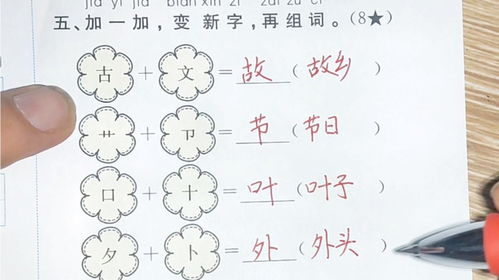 jiā yī jiā biàn xīn zì zài zǔ cí
五、加一加，变新字，再组词。(8★)
古 + 文 = 故 ( 故乡 )
艹 + 卩 = 节 ( 节日 )
口 + 十 = 叶 ( 叶子 )
夕 + 卜 = 外 ( 外头 )